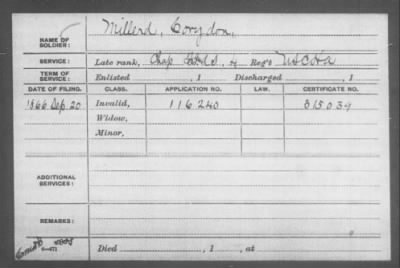 NAME OF SOLDIER: Millerd, Corydon,
SERVICE: Late rank, Chap Reg't
TERM OF SERVICE: Enlisted , 1 Discharged , 1
DATE OF FILING. CLASS. APPLICATION NO. LAW. CERTIFICATE NO.
1866 Sep. 20 Invalid, 116240 615039
Widow,
Minor,
ADDITIONAL SERVICES:
REMARKS:
Died , 1 , at